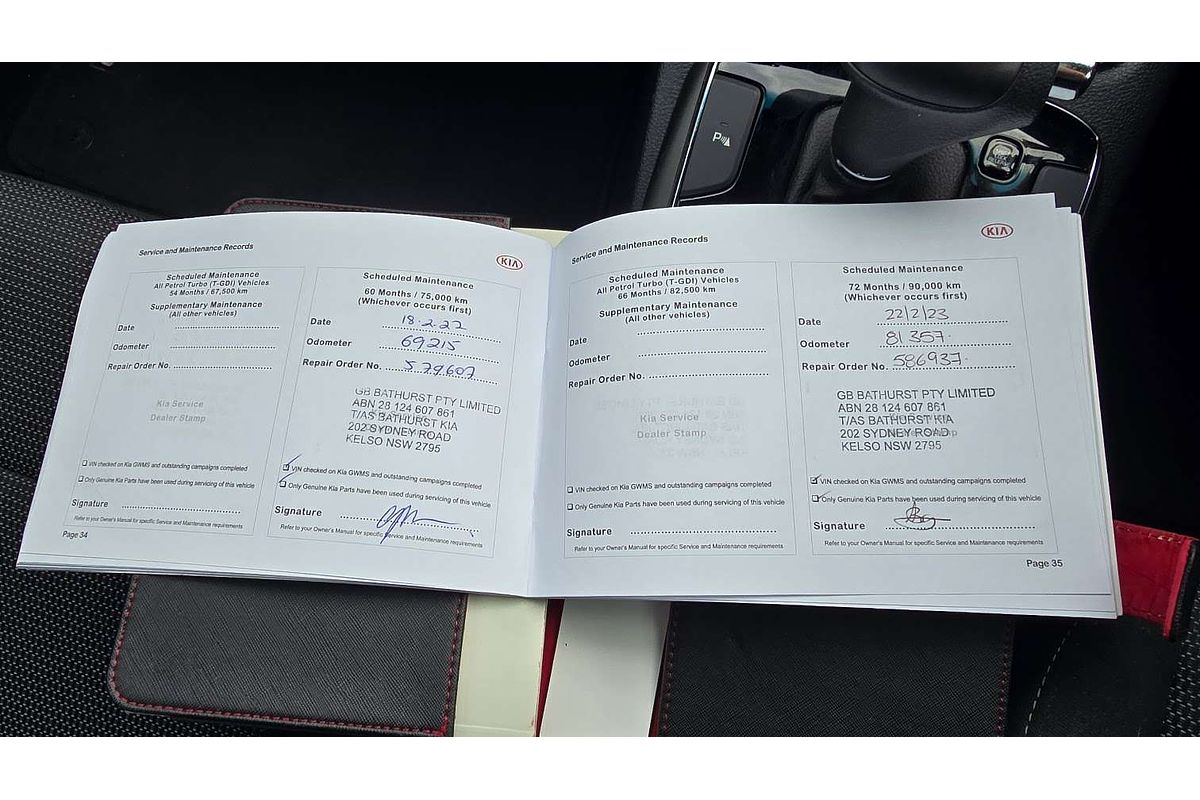 P
Service and Maintenance Records
KIA
Scheduled Maintenance
All Petrol Turbo (T-GDI) Vehicles
54 Months / 67,500 km
Supplementary Maintenance
(All other vehicles)
Date
Odometer
Repair Order No.
Kia Service
Dealer Stamp
VIN checked on Kia GWMS and outstanding campaigns completed
Only Genuine Kia Parts have been used during servicing of this vehicle
Signature
Refer to your Owner's Manual for specific Service and Maintenance requirements
Page 34
Scheduled Maintenance
60 Months / 75,000 km
(Whichever occurs first)
Date 18.2.22
Odometer 69215
Repair Order No. 579607
GB BATHURST PTY LIMITED
ABN 28 124 607 861
T/AS BATHURST KIA
202 SYDNEY ROAD
KELSO NSW 2795
VIN checked on Kia GWMS and outstanding campaigns completed
Only Genuine Kia Parts have been used during servicing of this vehicle
Signature
Refer to your Owner's Manual for specific Service and Maintenance requirements
Service and Maintenance Records
KIA
Scheduled Maintenance
All Petrol Turbo (T-GDI) Vehicles
66 Months / 82,500 km
Supplementary Maintenance
(All other vehicles)
Date
Odometer
Repair Order No.
Kia Service
Dealer Stamp
VIN checked on Kia GWMS and outstanding campaigns completed
Only Genuine Kia Parts have been used during servicing of this vehicle
Signature
Refer to your Owner's Manual for specific Service and Maintenance requirements
Scheduled Maintenance
72 Months / 90,000 km
(Whichever occurs first)
Date 22/2/23
Odometer 81357.
Repair Order No. 586937.
GB BATHURST PTY LIMITED
ABN 28 124 607 861
T/AS BATHURST KIA
202 SYDNEY ROAD
KELSO NSW 2795
VIN checked on Kia GWMS and outstanding campaigns completed
Only Genuine Kia Parts have been used during servicing of this vehicle
Signature
Refer to your Owner's Manual for specific Service and Maintenance requirements
Page 35